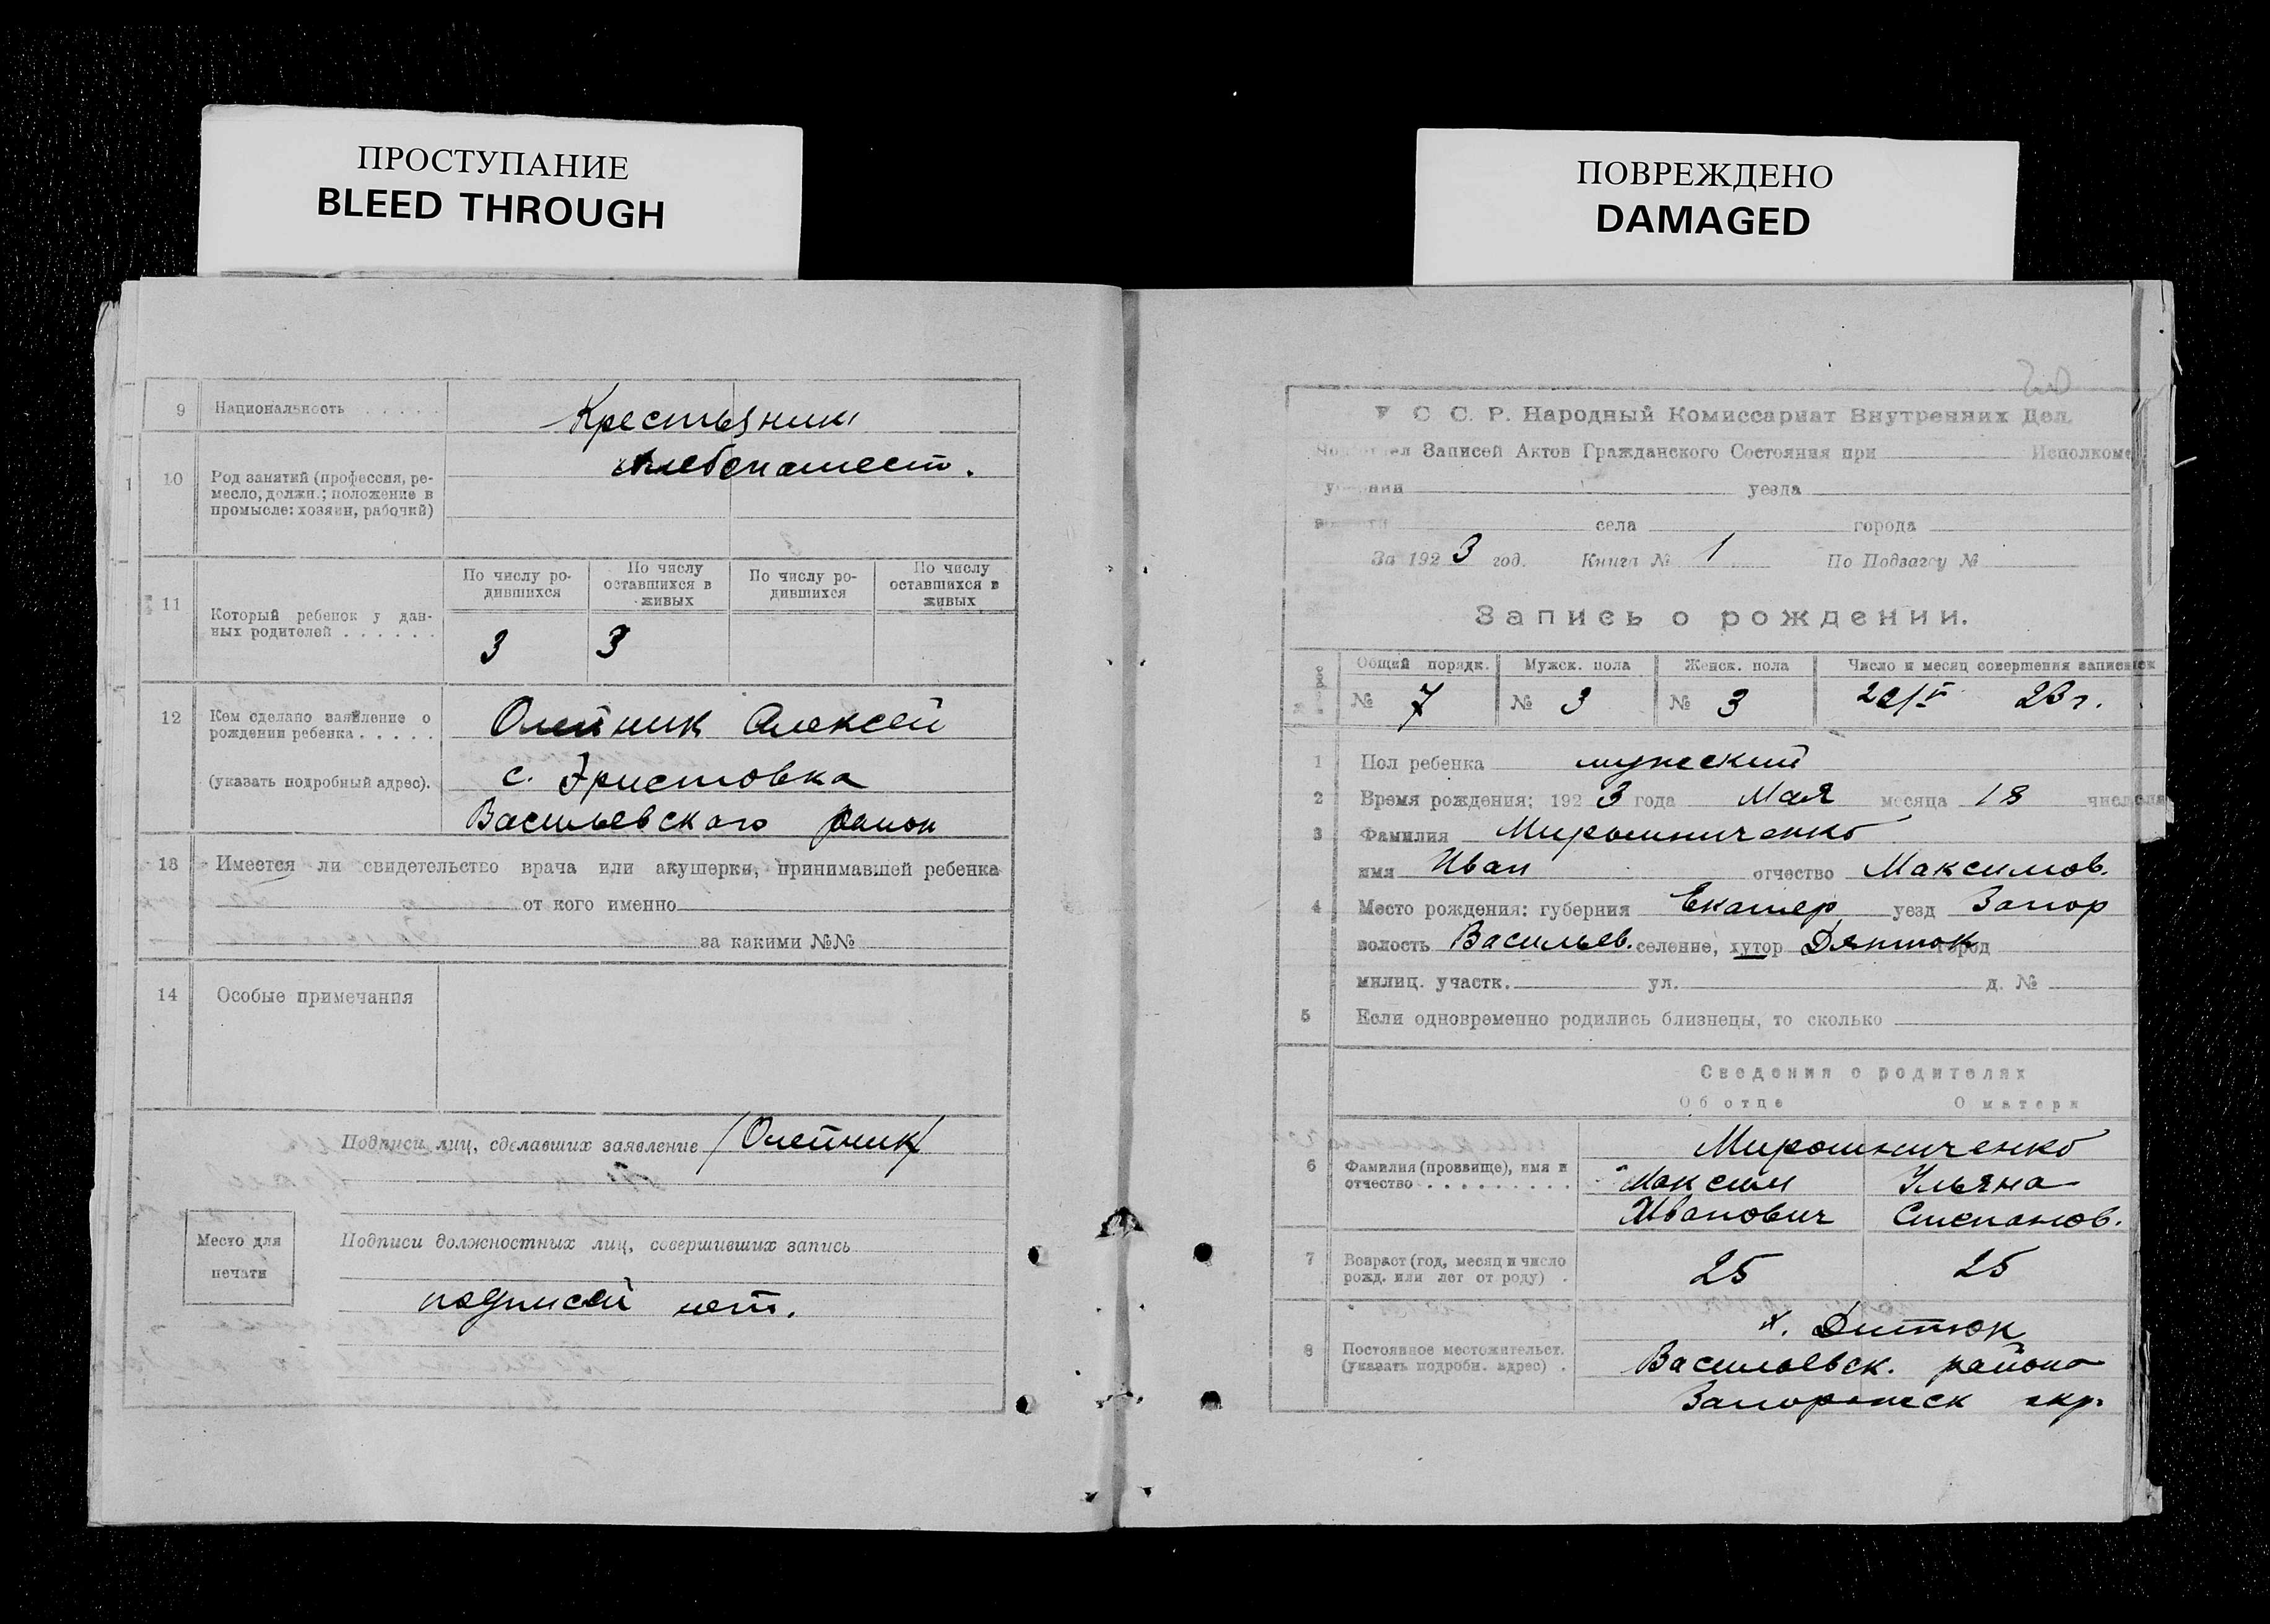 ПРОСТУПАНИЕ
BLEED THROUGH
9 Национальность . . . . . Крестьянин
10 Род занятий (профессия, ре-
месло, должн.; положение в
промысле: хозяин, рабочий)
хлебопашест.
11 Который ребенок у дан-
ных родителей . . . . . .
По числу ро-
дившихся
По числу
оставшихся в
живых
По числу ро-
дившихся
По числу
оставшихся в
живых
3 3
12 Кем сделано заявление о
рождении ребенка . . . . .
(указать подробный адрес).
Олейник Алексей
с. Эристовка
Васильевского район
13 Имеется ли свидетельство врача или акушерки, принимавшей ребенка
от кого именно
за какими №№
14 Особые примечания
Подписи лиц, сделавших заявление /Олейник/
Место для
печати
Подписи должностных лиц, совершивших запись
подписей нет.
ПОВРЕЖДЕНО
DAMAGED
У С С. Р. Народный Комиссариат Внутренних Дел.
Записей Актов Гражданского Состояния при Исполкоме
уезда
села города
За 1923 год. Книга № 1 По Подзагсу №
Запись о рождении.
Общий порядк. Мужск. пола Женск. пола Число и месяц совершения записи
№ 7 № 3 № 3 23 г.
1 Пол ребенка мужеский
2 Время рождения: 1923 года Мая месяца 18 числа
3 Фамилия Мирошниченко
имя Иван отчество Максимов.
4 Место рождения: губерния Екатер уезд Запор
волость Васильев. селение, хутор город
милиц. участк. ул. д. №
5 Если одновременно родились близнецы, то сколько
Сведения о родителях
Об отце О матери
6 Фамилия (прозвище), имя и
отчество . . . . . . . . .
Мирошниченко
Максим Ульяна
Иванович Степанов.
7 Возраст (год, месяц и число
рожд. или лет от роду) .
25 25
8 Постоянное местожительст.
(указать подробн. адрес) .
х. Дитюк
Васильевск. района
Запорожск окр.